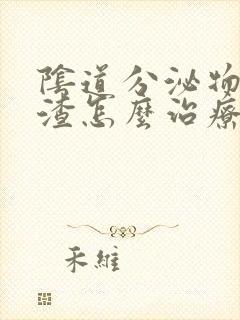 陰道分泌物
渣怎麼治療
禾維